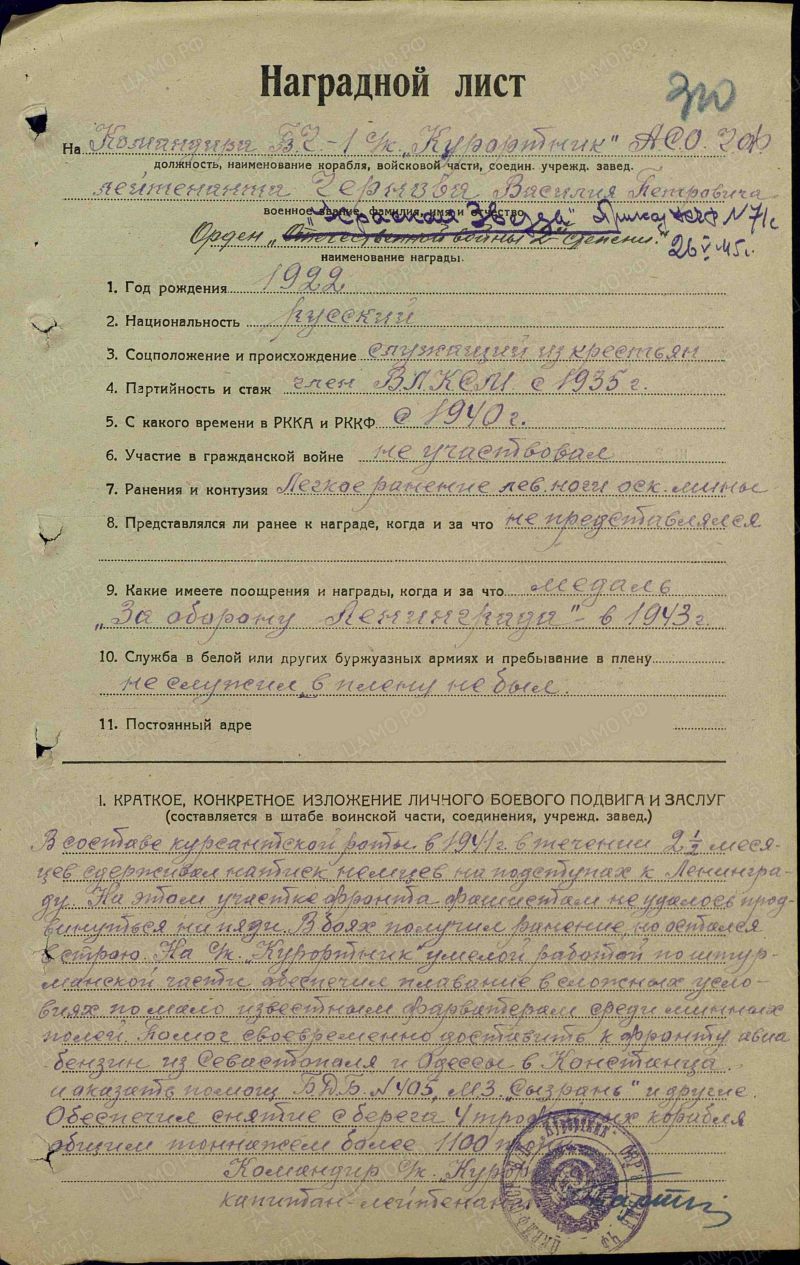 Наградной лист
320
На Командира БЧ-1 с/к "Курортник" АСО ЧФ
должность, наименование корабля, войсковой части, соедин. учрежд. завед.
лейтенанта Чернова Василия Петровича
военное звание, фамилия, имя и отчество
"Красная Звезда" Приказ КЧФ № 71с
Орден "Отечественной войны 2й степени."
26/V 45 г.
наименование награды.
1. Год рождения 1922
2. Национальность русский
3. Соцположение и происхождение служащий из крестьян
4. Партийность и стаж член ВЛКСМ с 1935 г.
5. С какого времени в РККА и РККФ с 1940 г.
6. Участие в гражданской войне не участвовал
7. Ранения и контузия Легкое ранение лев. ноги оск. мины
8. Представлялся ли ранее к награде, когда и за что не представлялся
9. Какие имеете поощрения и награды, когда и за что медаль
"За оборону Ленинграда" - в 1943 г.
10. Служба в белой или других буржуазных армиях и пребывание в плену
не служил, в плену не был.
11. Постоянный адре
I. КРАТКОЕ, КОНКРЕТНОЕ ИЗЛОЖЕНИЕ ЛИЧНОГО БОЕВОГО ПОДВИГА И ЗАСЛУГ
(составляется в штабе воинской части, соединения, учрежд. завед.)
В составе курсантской роты в 1941 г. в течении 2 1/2 меся-
цев сдерживал натиск немцев на подступах к Ленингра-
ду. На этом участке фронта фашистам не удалось прод-
винуться ни пяди. В боях получил ранение, но остался
в строю. На с/к "Курортник" умелой работой по штур-
манской части обеспечил плавание в сложных усло-
виях по мало известным фарватерам среди минных
полей. Помог своевременно доставить к фронту авиа
бензин из Севастополя и Одессы в Констанца
и оказать помощ БДБ № 405, МЗ "Сызрань" и другие.
Обеспечил снятие с берега 4 трофейных корабля
общим тоннажем более 1100 тонн.
Командир с/к "Курор
капитан-лейтенант